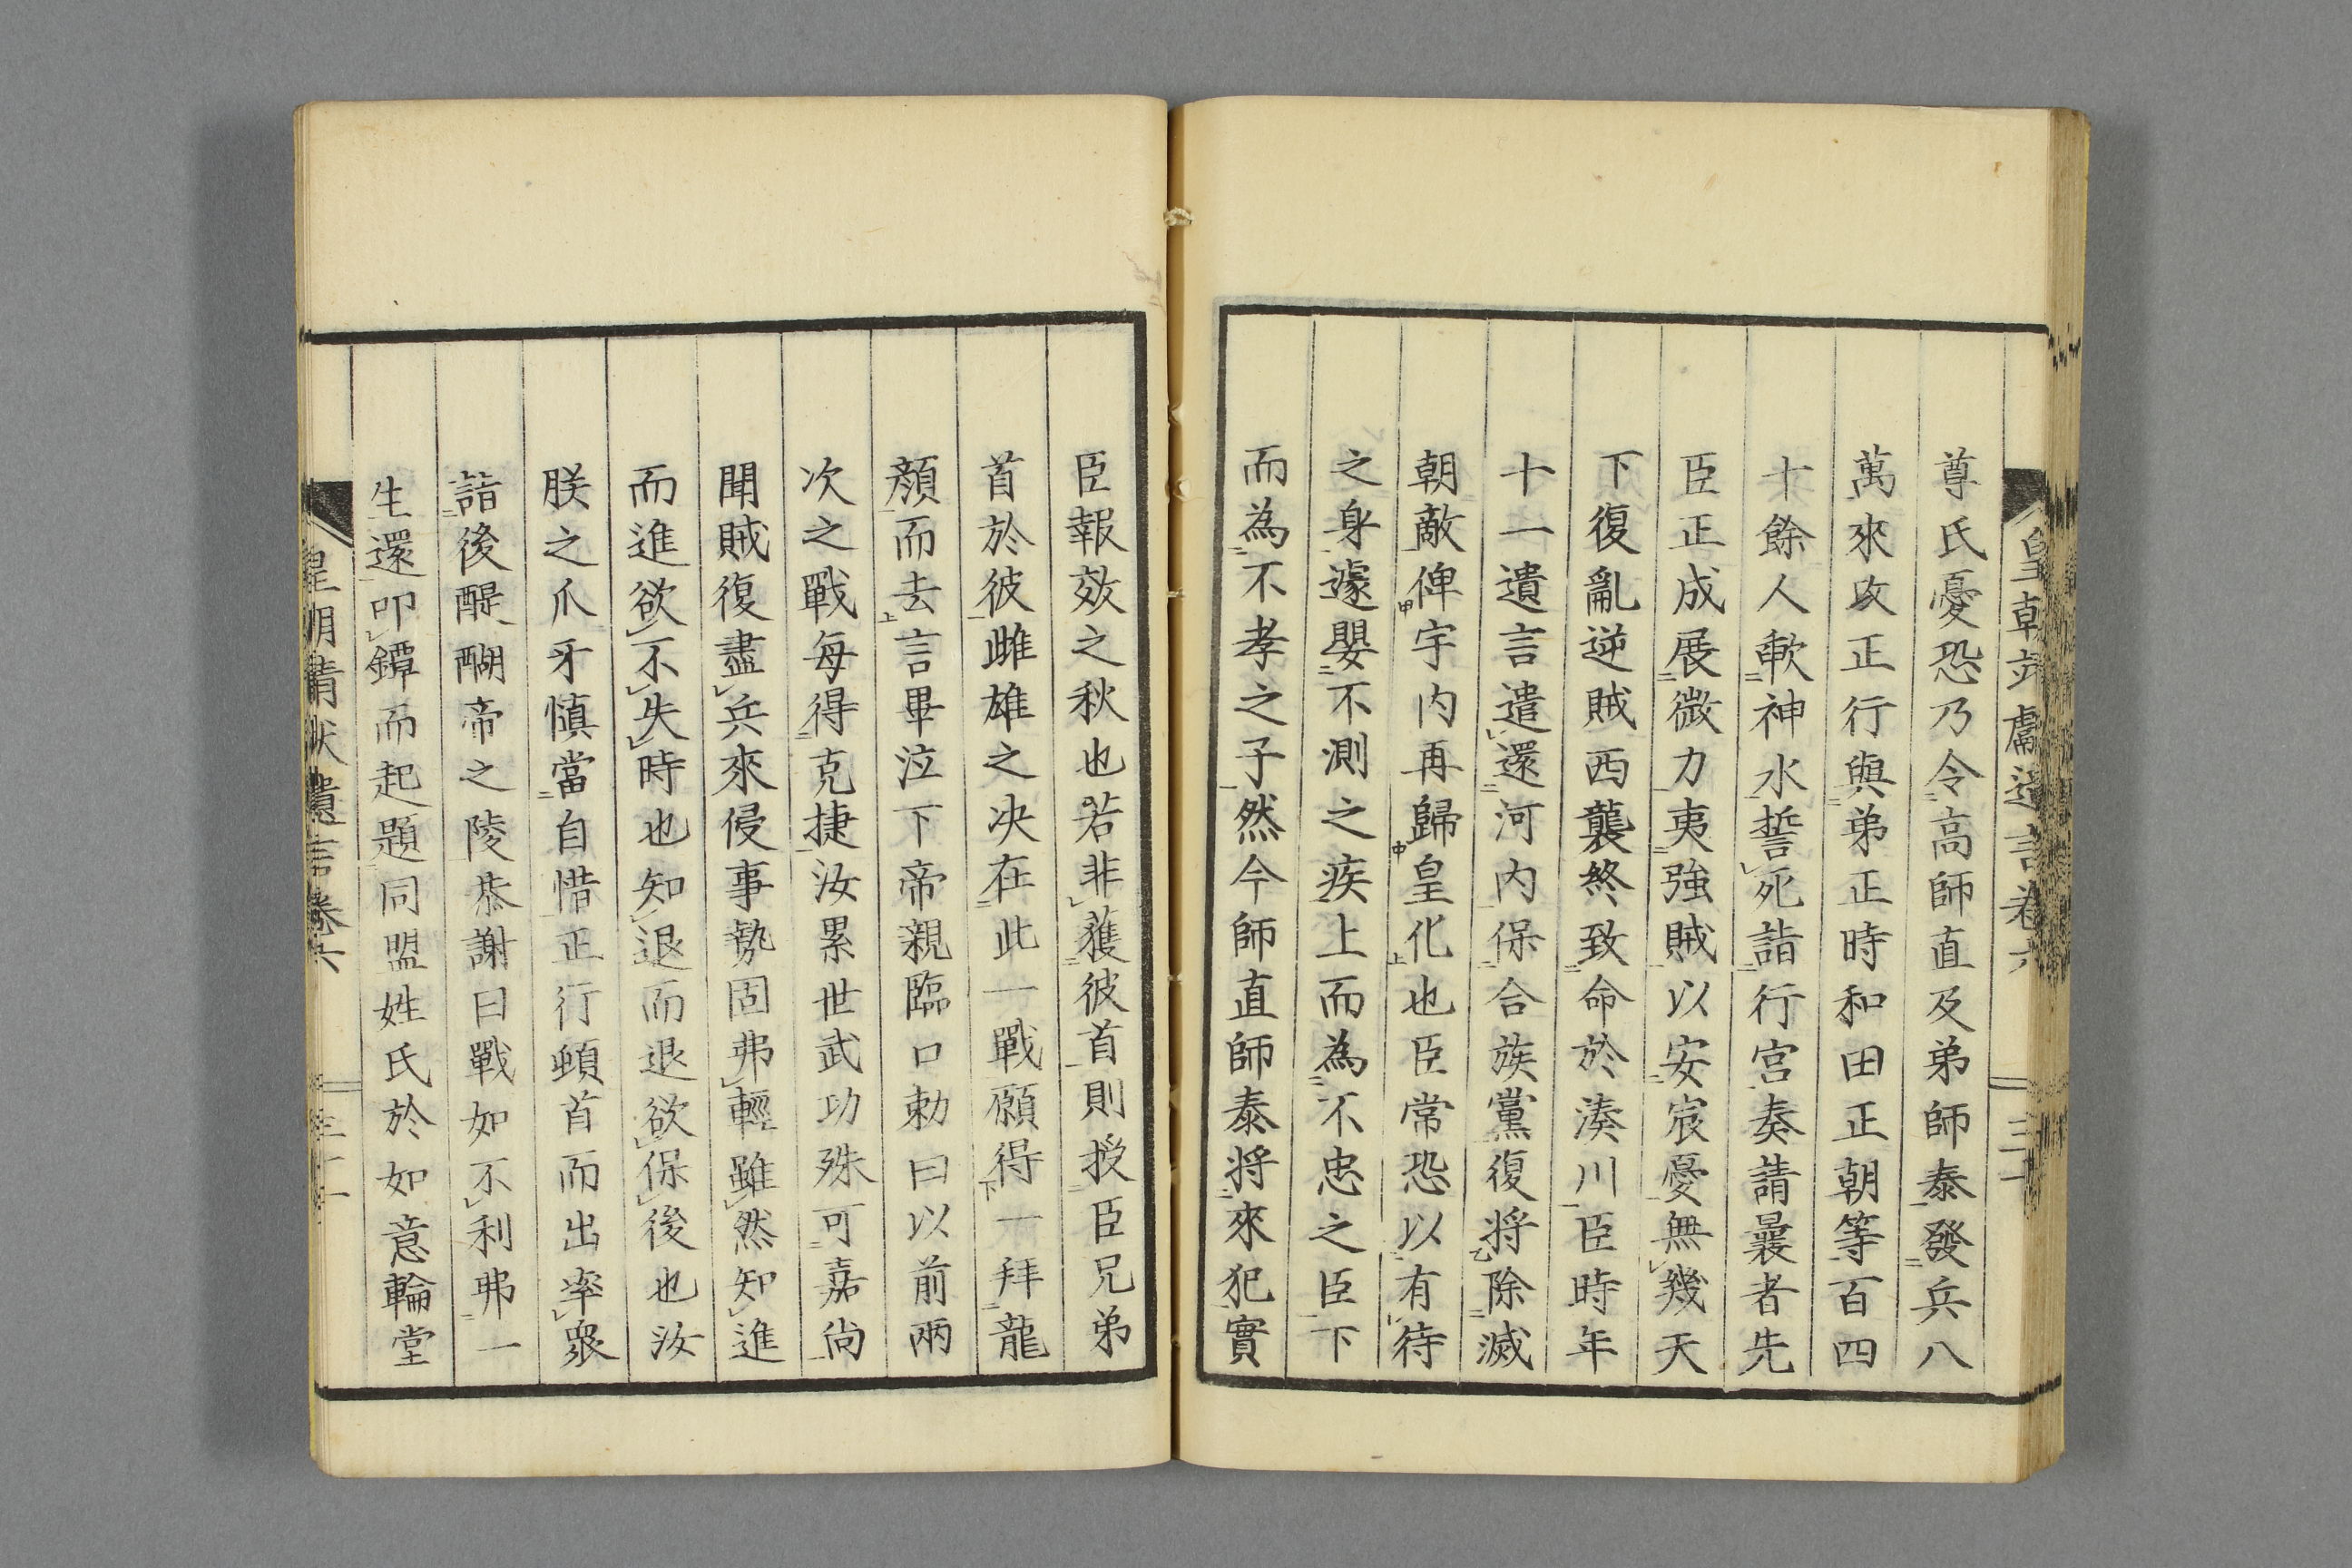 尊氏憂恐乃令高師直及弟師泰發兵八
萬來攻正行與弟正時和田正朝等百四
十餘人歃神水誓死詣行宮奏請曩者先
臣正成展微力夷強賊以安宸憂無幾天
下復亂逆賊西襲終致命於湊川臣時年
十一遺言遣還河內保合族黨復將除滅
朝敵俾宇內再歸皇化也臣常恐以有待
之身遽嬰不測之疾上而為不忠之臣下
而為不孝之子然今師直師泰將來犯實
臣報效之秋也若非獲彼首則授臣兄弟
首於彼雌雄之决在此一戰願得一拜龍
顏而去言畢泣下帝親臨口勅曰以前兩
次之戰每得克捷汝累世武功殊可嘉尚
聞賊復盡兵來侵事勢固弗輕雖然知進
而進欲不失時也知退而退欲保後也汝
朕之爪牙慎當自惜正行頓首而出率衆
詣後醍醐帝之陵恭謝曰戰如不利弗一
生還叩鐔而起題同盟姓氏於如意輪堂